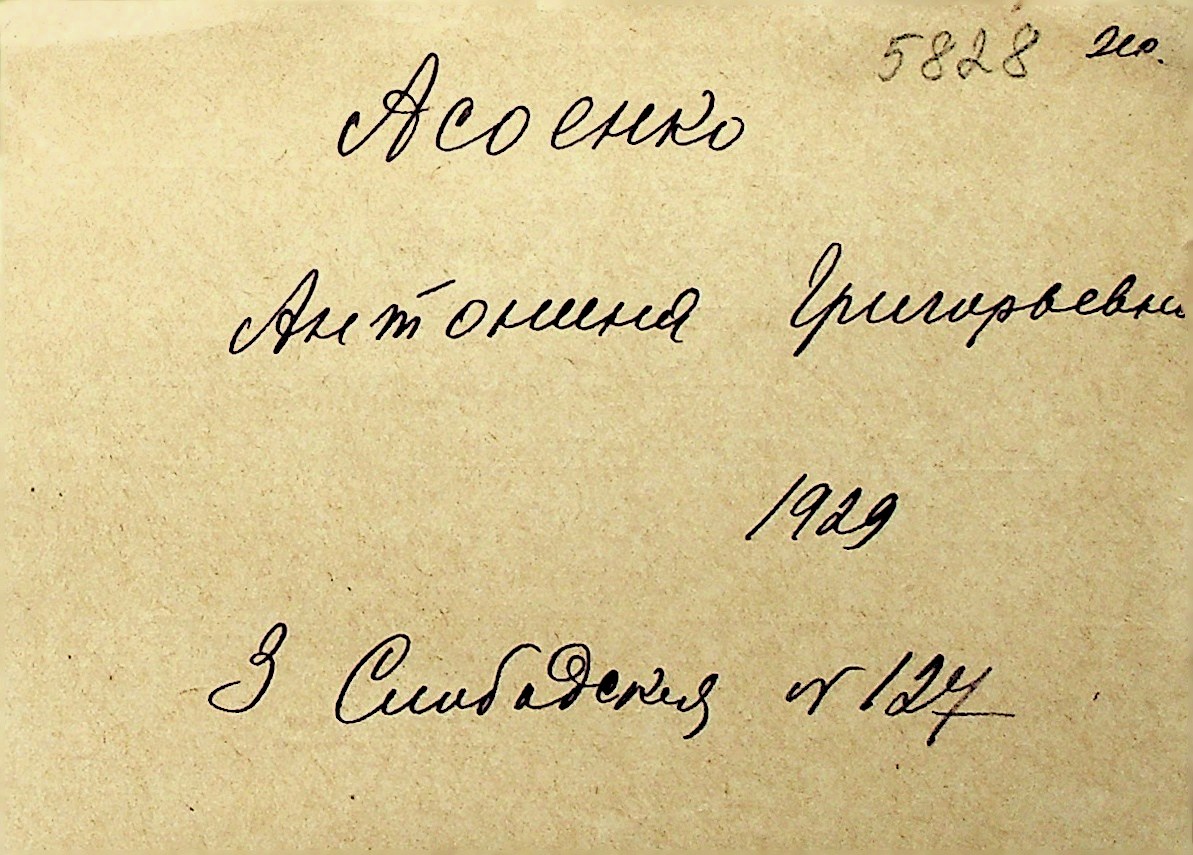 5828
Асоенко
Антонина Григорьевна
1929
3 Слободская N 127